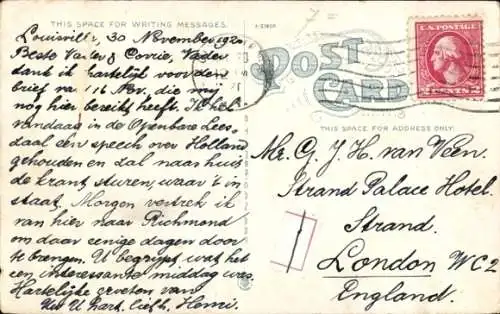 THIS SPACE FOR WRITING MESSAGES.
Louisville, 30 November 1920
Beste Vader & Corrie, Vader
dank ik hartelijk voor den
brief va 16 Nov. die mij
nog hier bereikt heeft. Ik heb
vandaag in de Openbare Lees-
zaal een speech over Holland
gehouden en zal naar huis
de krant sturen, waar 't in
staat. Morgen vertrek ik
van hier naar Richmond
om daar eenige dagen door
te brengen. U begrijpt wat het
een interessante middag was.
Hartelijke groeten van
Uw U hart. liefh. Henri.
POST
CARD
U.S. POSTAGE
2 CENTS 2
THIS SPACE FOR ADDRESS ONLY.
Mr. G. J. H. van Veen.
Strand Palace Hotel.
Strand.
London WC2
England.